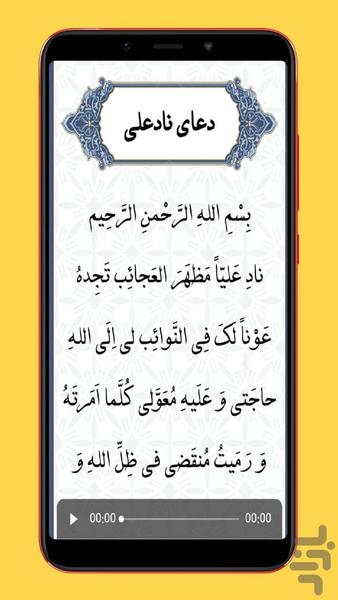 دعای نادعلی
بِسْمِ اللهِ الرَّحْمنِ الرَّحِیم
نادِ عَلیّاً مَظهَرَ العَجائِب تَجِدهُ
عَوْناً لَکَ فِی النَّوائِب لی اِلَی اللهِ
حاجَتی وَ عَلَیهِ مُعَوَّلی کُلَّما اَمَرتَهُ
وَ رَمَیتُ مُنقَضی فی ظِلِّ اللهِ وَ
00;00 00;00
بازار